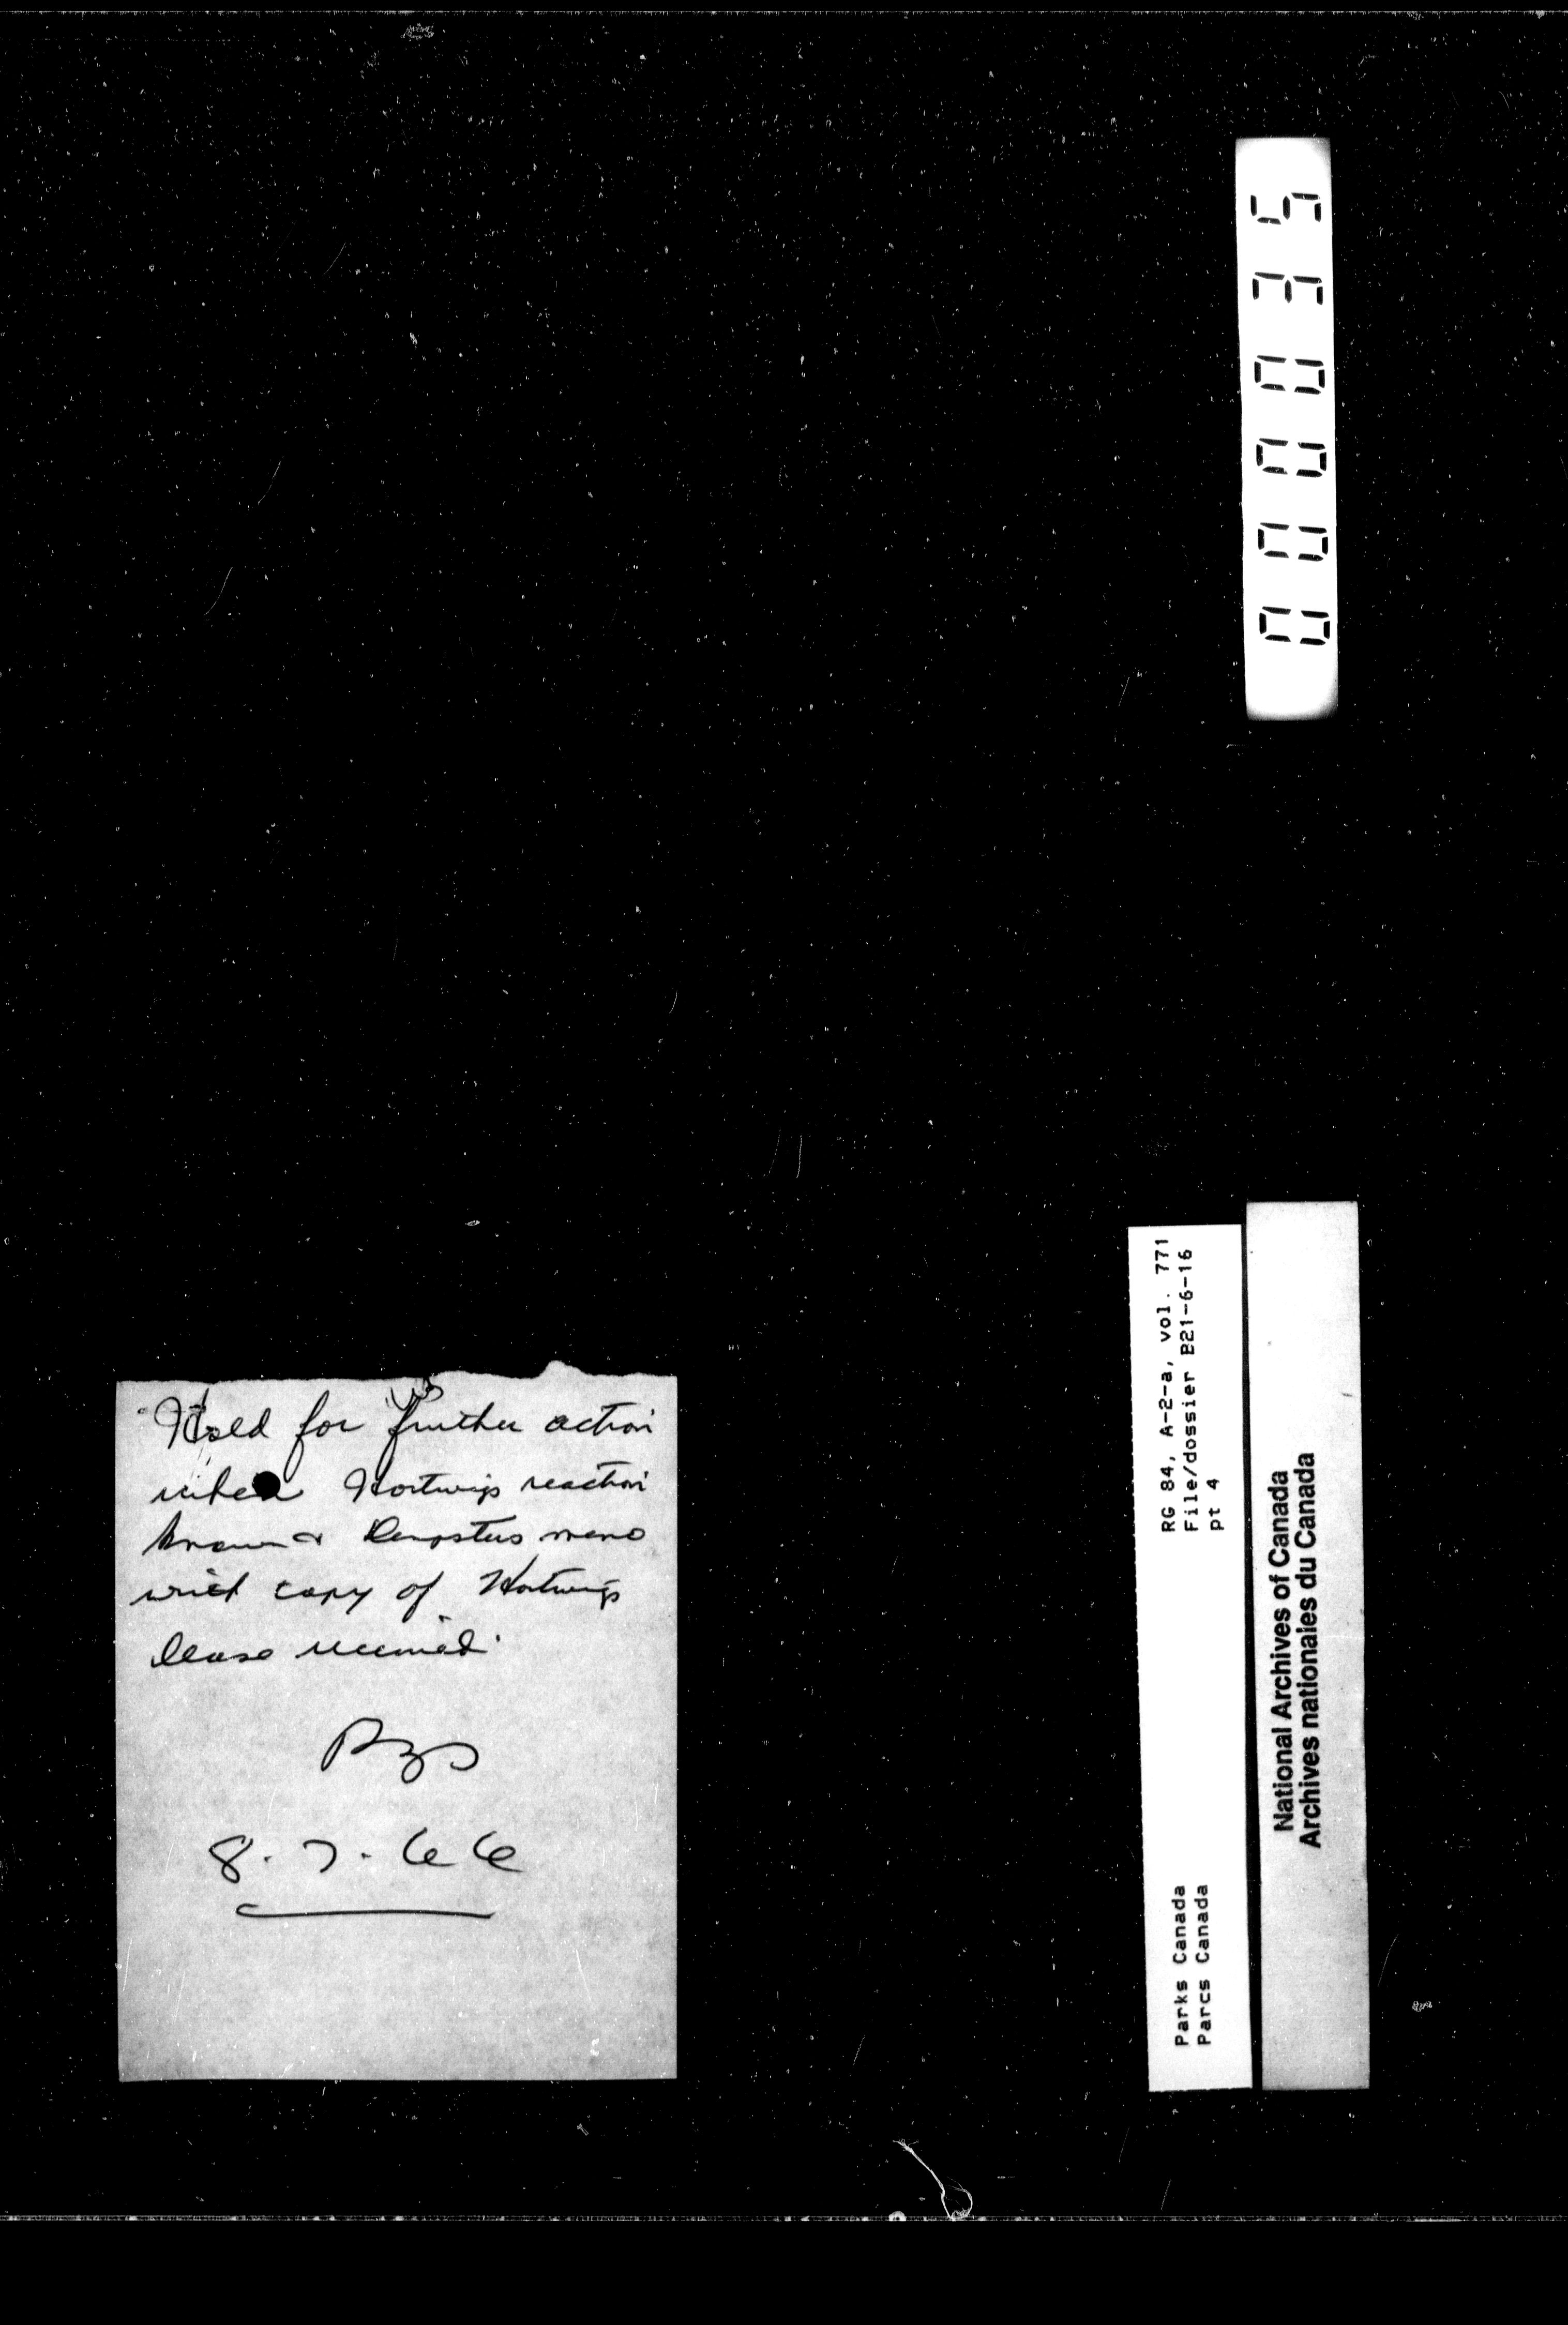 Hold for further action
when Hartwigs reaction
known & Dempsters memo
with copy of Hartwigs
lease received.
8.7.66
000035
RG 84, A-2-a, vol. 771
File/dossier B21-6-16
pt 4
Parks Canada
Parcs Canada
National Archives of Canada
Archives nationales du Canada